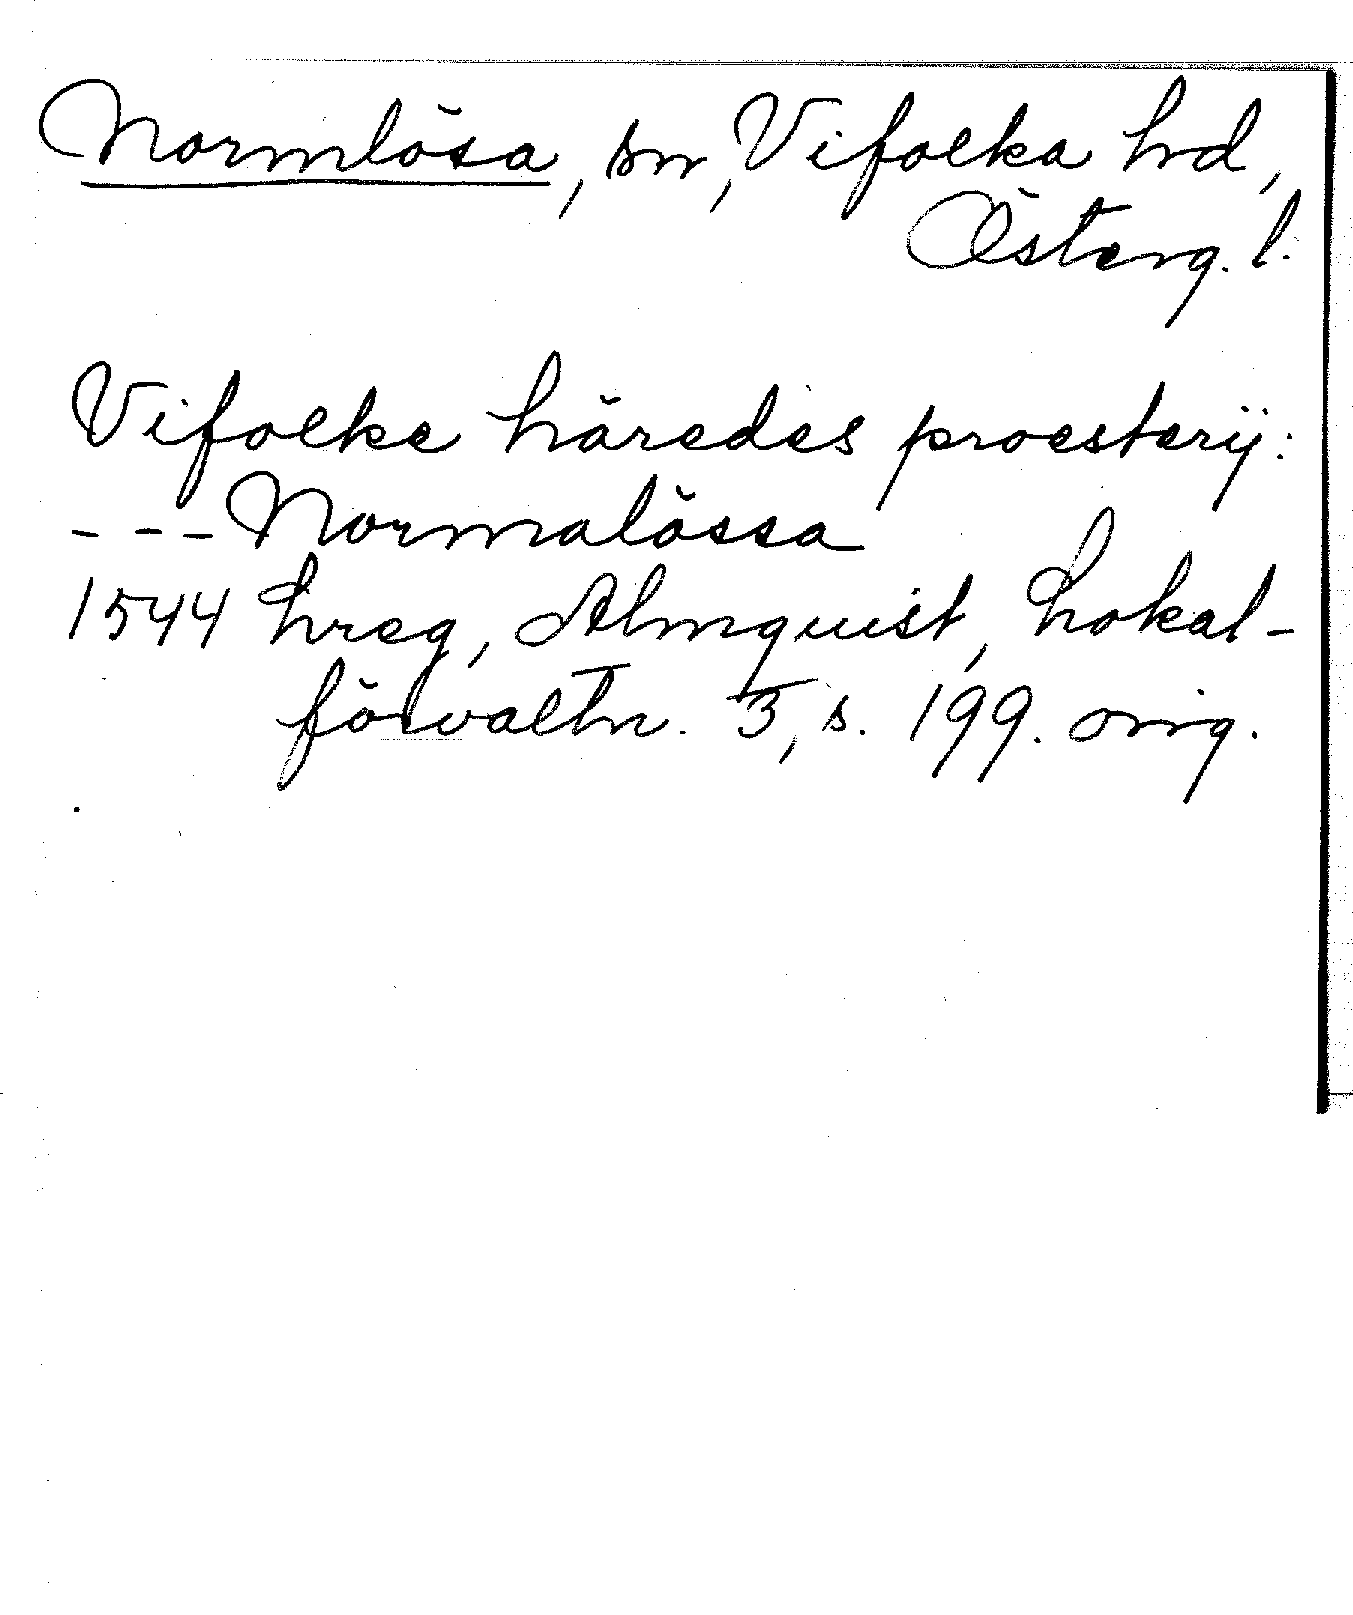 Normlösa, sn, Vifolka hrd,
Österg. l.
Vifolke häredes proesterij:
--- Normalössa
1544 hreg, Almquist, Lokal-
förvaltn. 3, s. 199. orig.